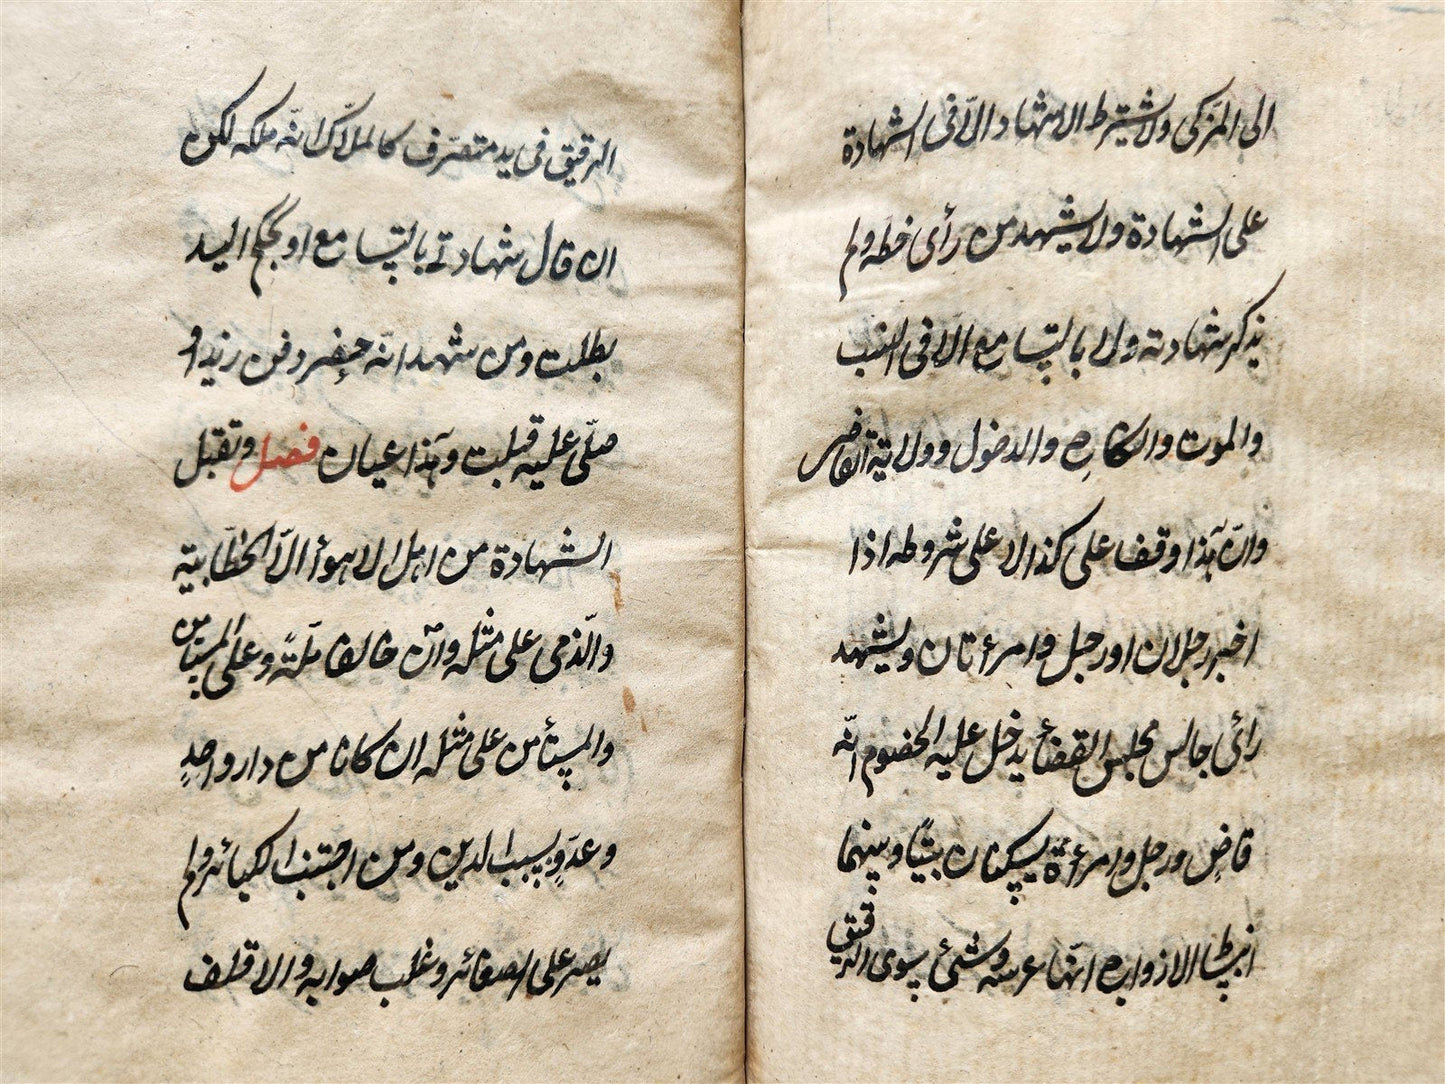 الى المزكى ولا يشترط الاشهاد الّا فى الشهادة
على الشهادة ولا يشهد من رأى خطه ولم
يذكر شهادته ولا بالتسامع الا فى النسب
والموت والنكاح والدخول وولاية القاضى
وانّ هذا وقف على كذا لا على شروطه اذا
اخبر رجلان او رجل وامرأتان ويشهد
رائى جالس مجلس القضاء يدخل عليه الخصوم انّه
قاضٍ ورجل وامرأة يسكنان بيتًا وبينهما
انبساط الازواج انّها عرسه وشئ سوى الرقيق
الرقيق فى يد متصرّف كالملاك انّه ملكه لكن
ان قال شهادتى بالتسامع او بحكم اليد
بطلت ومن شهد انّه حضر دفن زيد او
صلّى عليه قبلت وهذا عيان فصل وتقبل
الشهادة من اهل الاهوأ الّا الخطّابية
والذّمى على مثله وان خالفا ملّةً وعلى المستأمن
والمستأمن على مثله ان كانا من دار واحدٍ
وعدوٍّ بسبب الدين ومن اجتنب الكبائر ولم
يصر على الصغائر وغلب صوابه والاقلف